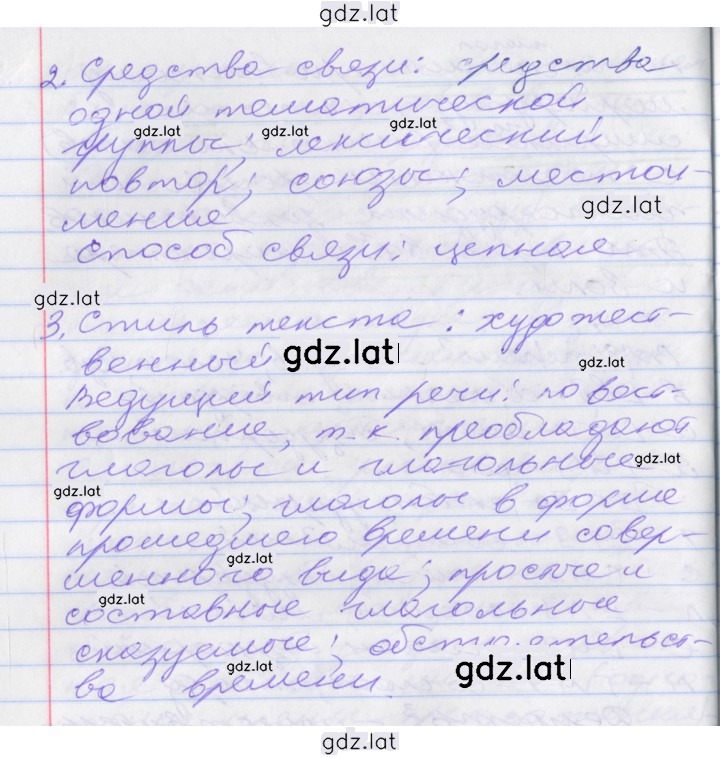 gdz.lat
2. Средства связи: средства
одной тематической
gdz.lat gdz.lat gdz.lat
группы; лексический
повтор; союзы; местои-
gdz.lat
мение
Способ связи: цепная
gdz.lat
3. Стиль текста: художест-
венный
gdz.lat
gdz.lat
Ведущий тип речи: повест-
вование, т.к. преобладают
глаголы и глагольные
gdz.lat
gdz.lat
формы; глаголы в форме
прошедшего времени совер-
gdz.lat
менного вида; простые и
gdz.lat
составные глагольные
сказуемые; обстоятельст-
gdz.lat
gdz.lat
ва времени.
gdz.lat